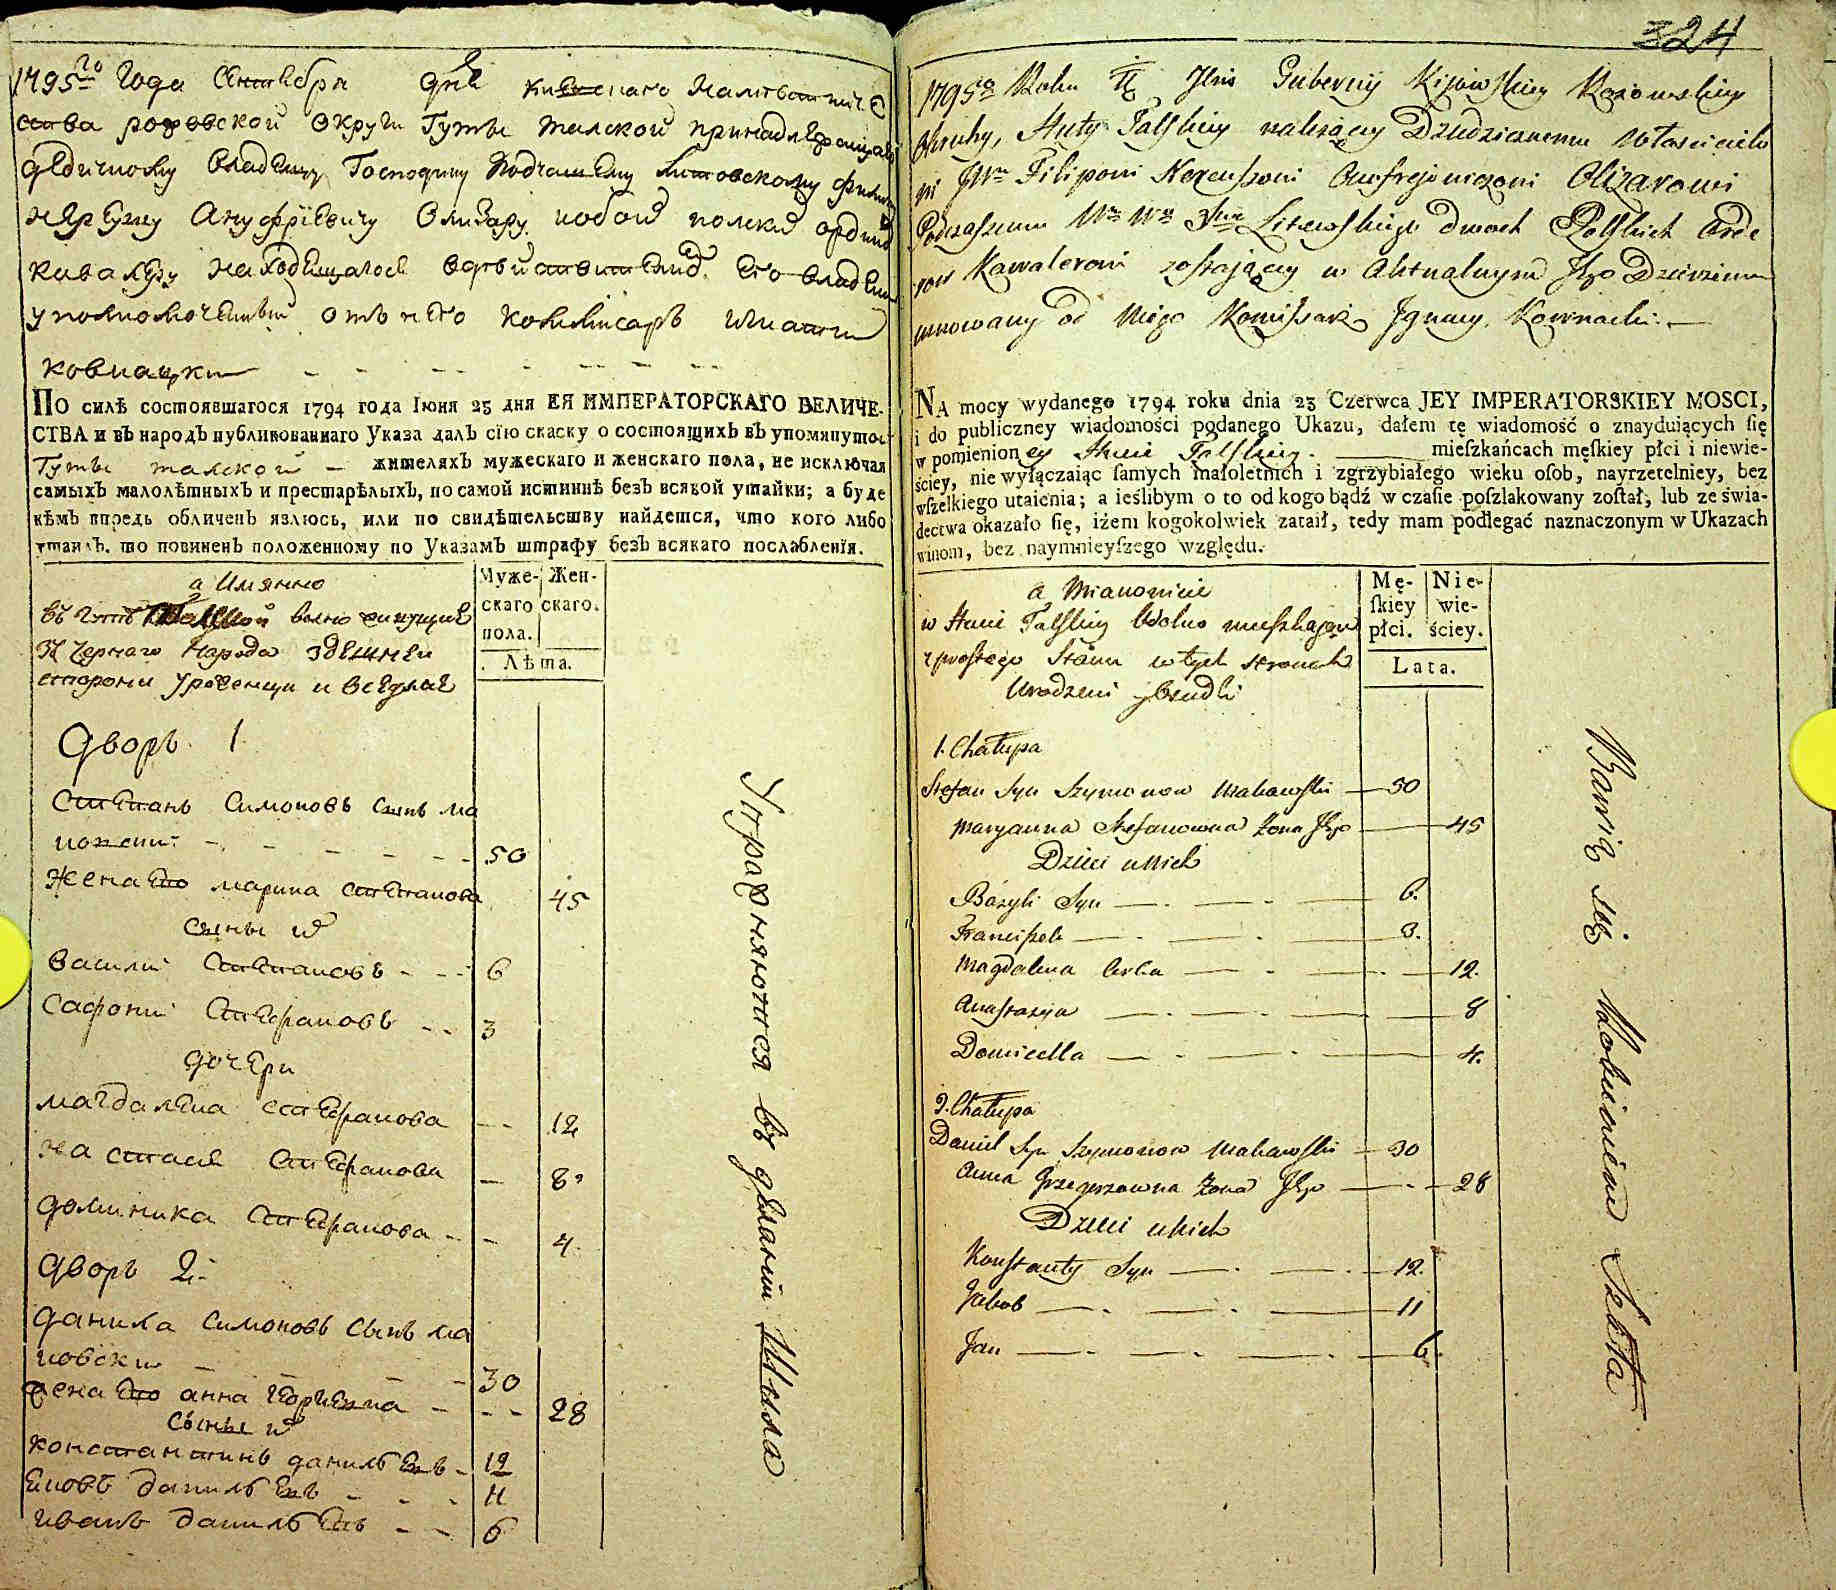 324
1795го Года Сентебра дня киевского наместниче
ства рофовской округи Гуты талской принадлежащей
дедичному владелцу Господину Подчашему Литовскому
Нярцузу Ануфріевичу Олизару обоих полских
кавалеру находящагося вдействителном его владени
уполномоченный отъ него коммисаръ игнати
ковнацки
По силѣ состоявшагося 1794 года Іюня 23 дня ЕЯ ИМПЕРАТОРСКАГО ВЕЛИЧЕ-
СТВА и въ народъ публикованнаго Указа далъ сію скаску о состоящихъ въ упомянутой
Гуты талской — жителяхъ мужескаго и женскаго пола, не исключая
самыхъ малолѣтныхъ и престарѣлыхъ, по самой истиннѣ безъ всякой утайки; а буде
кѣмъ впредь обличенъ явлюсь, или по свидѣтельству найдется, что кого либо
утаилъ, то повиненъ положенному по Указамъ штрафу безъ всякаго послабленія.
а Имянно
въ гутѣ Талской волно живущие
Из Чернаго Народа здешнеи
стороны уроженци и
Муже-
скаго
пола.
Жен-
скаго.
Лѣта.
Дворъ 1
Степанъ Симоновъ сынъ ма
ковски 50
Жена Его марина степанова 45
сыны их
василий Степановъ 6
Сафони Стефановъ 3
дочери
магдалена стефанова 12
настася Стефанова 8
доминика Стефанова 4
Дворъ 2
данила симоновъ сынъ ма
ковски 30
жена Его анна 28
Сыны их
констанътинъ данилевъ 12
данилевъ 11
иванъ данилевъ 6
Упражняются въ деланіи Шкла
1795o Roku Gubernij Kijowskiey
Okruhy, Huty Talskiey należącey Dziedzicznemu Włascicielo
wi JWu Filipowi Nereuszowi Onufrejewiczowi Olizarowi
Podczaszemu Litewskiego dwoch Polskich Orde
row Kawalerowi zostaiącey w Aktualnym Jego Dzierżeniu
umocowany od Niego Komissarz Ignacy Kownacki.—
NA mocy wydanego 1794 roku dnia 23 Czerwca JEY IMPERATORSKIEY MOSCI,
i do publiczney wiadomości podanego Ukazu, dałem tę wiadomość o znayduiących ſię
w pomienioney Hucie Talskiey. — mieſzkańcach męſkiey płci i niewie-
ściey, nie wyłączaiąc ſamych małoletnich i zgrzybiałego wieku oſob, nayrzetelniey, bez
wſzelkiego utaienia; a ieślibym o to od kogo bądź w czaſie poſzlakowany zoſtał, lub ze świa-
dectwa okazało ſię, iżem kogokolwiek zataił, tedy mam podlegać naznaczonym w Ukazach
winom, bez naymnieyſzego względu.
a Mianowicie
w Hucie Talskiey Wolno mieszkaiący
z prostego Stanu w tych stronach
Urodzeni
Mę-
ſkiey
płci.
Nie-
wie-
ściey.
Lata.
1. Chałupa
Stefan Syn Szymonow Makowski — 50
Maryanna Stefanowna Zona Jego — 45
Dzieci u Nich
Bazyli Syn — 6.
Franciszek — 3.
Magdalena Corka — 12.
Anastazya — 8
Domicella — 4.
2. Chałupa
Daniel Syn Szymonow Makowski — 30
Anna Grzegorzowna Zona Jego — 28
Dzieci u Nich
Konstanty Syn — 12.
Jakob — 11
Jan — 6.
Bawią się Robieniem Szkła